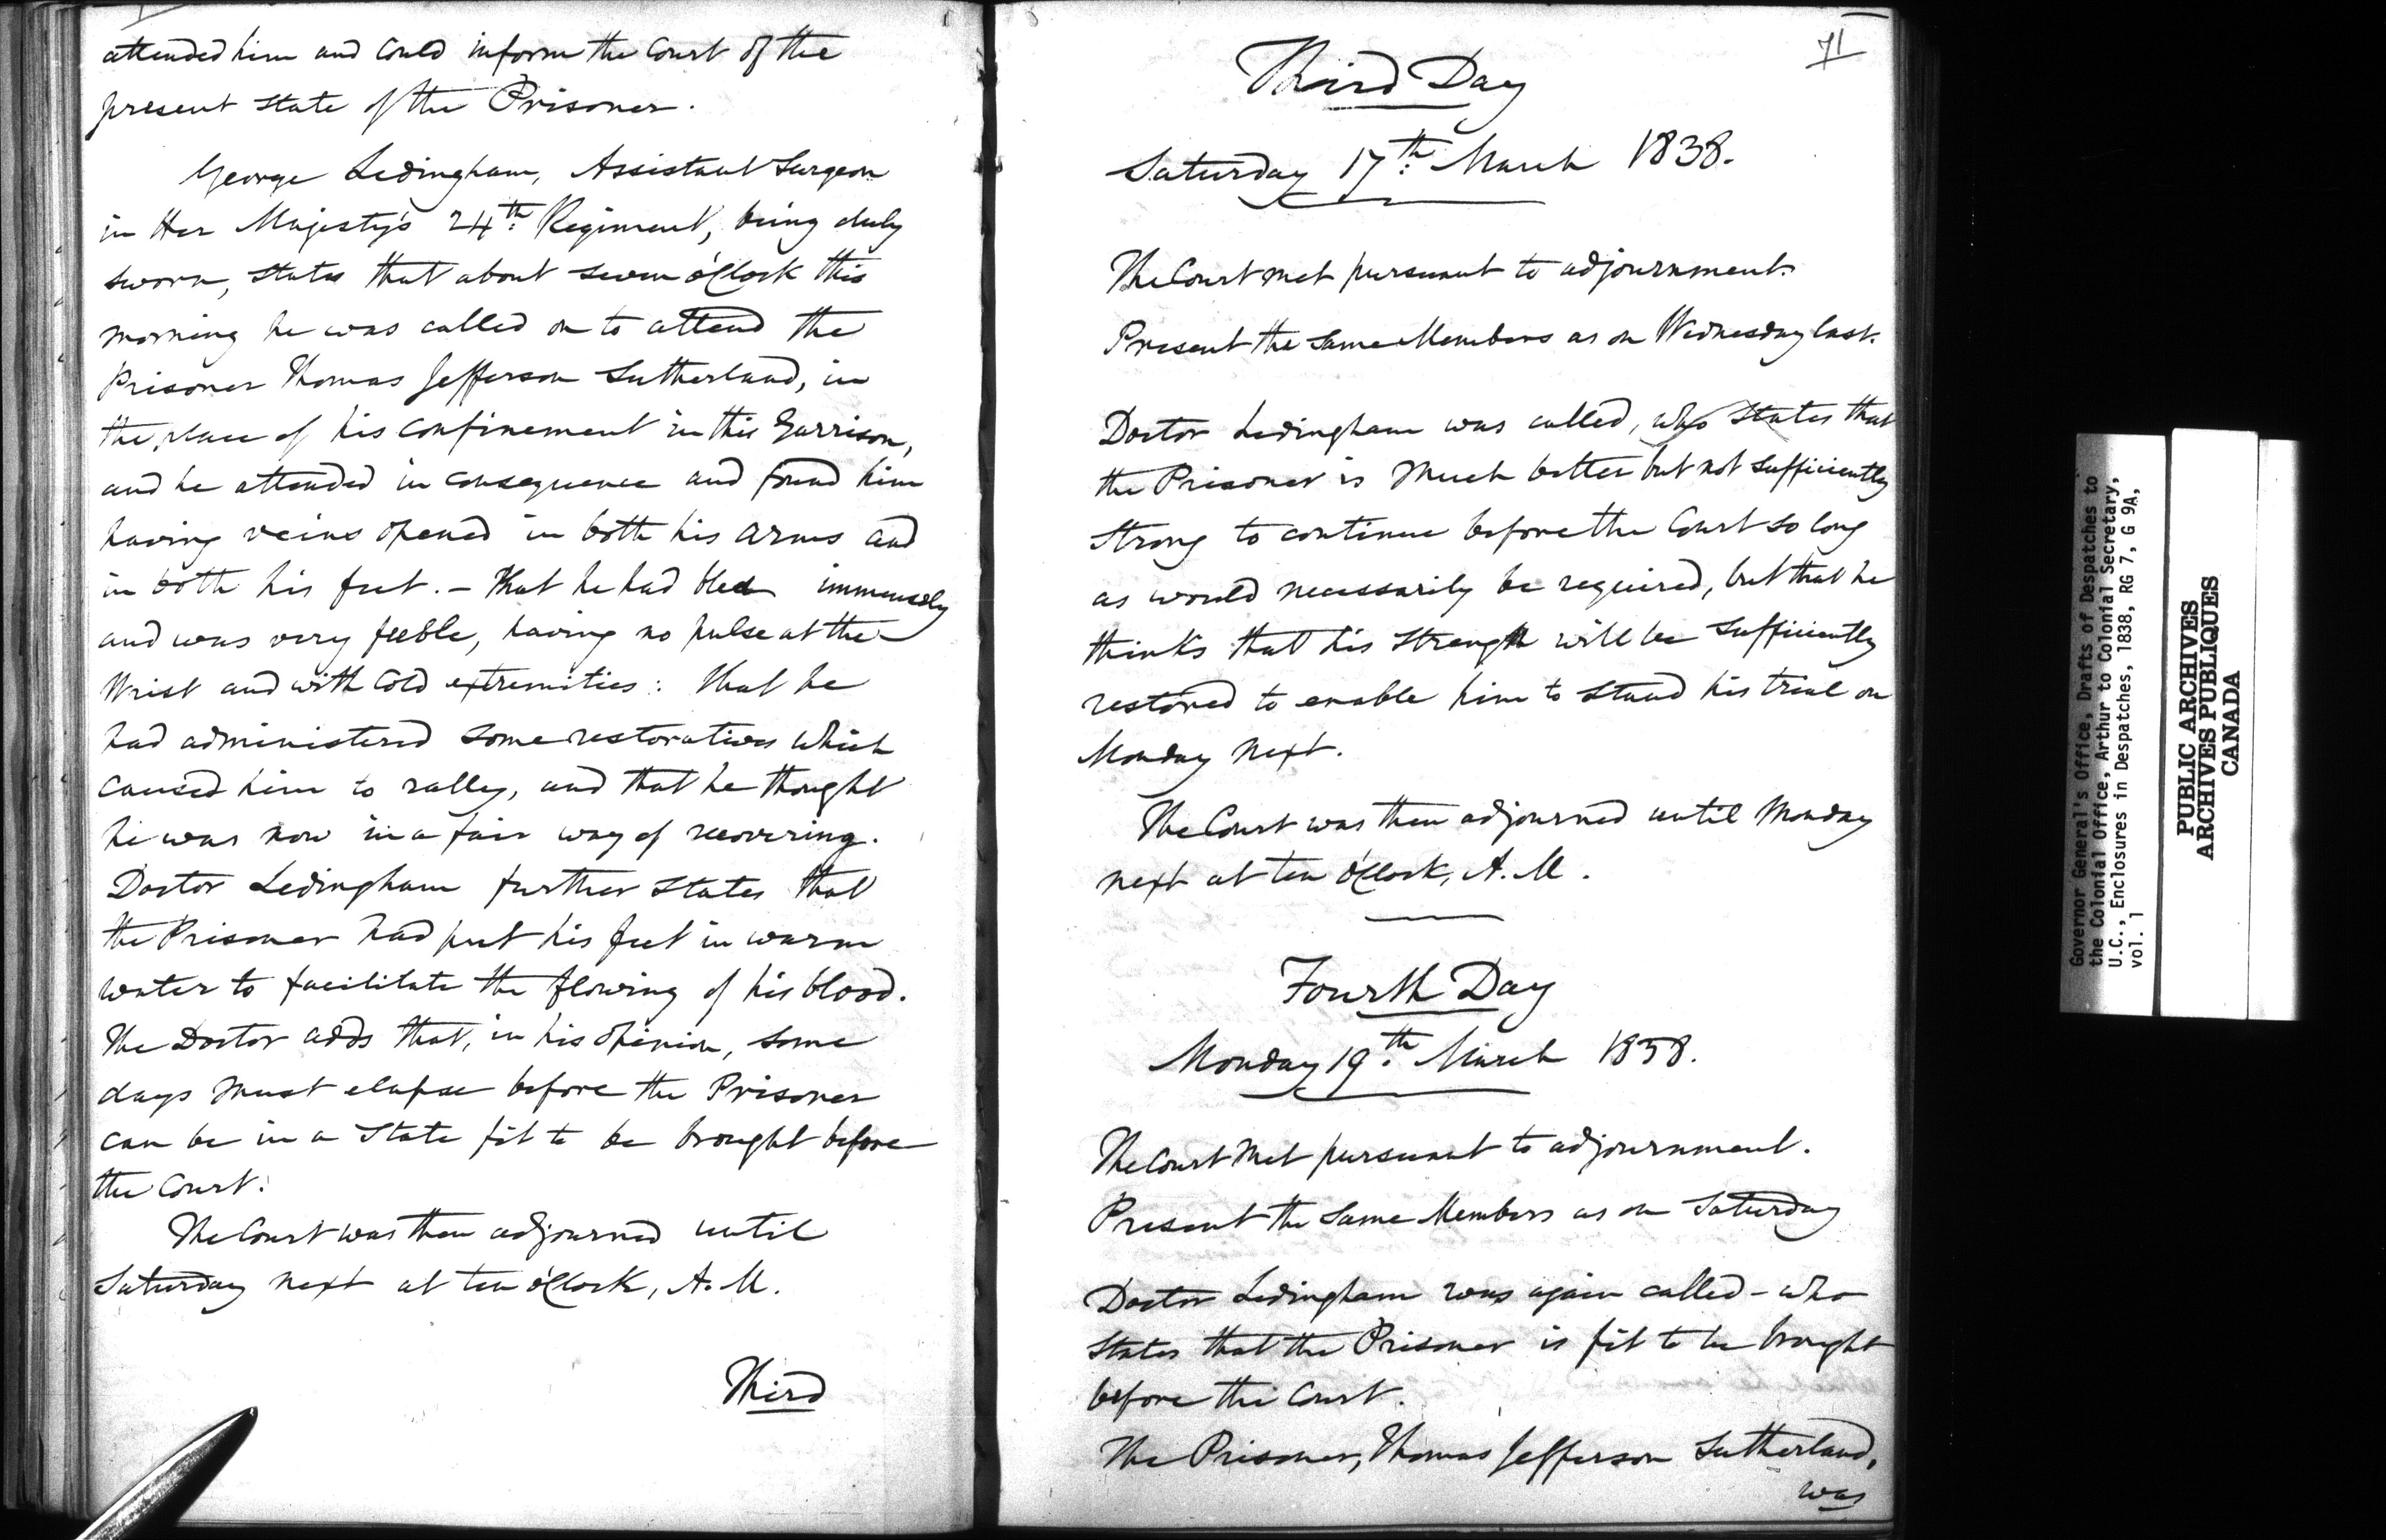 attended him and could inform the Court of the
present state of the Prisoner.
George Ledingham, Assistant Surgeon
in Her Majesty's 24th Regiment, being duly
sworn, states that about seven o'Clock this
morning he was called on to attend the
Prisoner Thomas Jefferson Sutherland, in
the place of his confinement in this Garrison,
and he attended in consequence and found him
having veins opened in both his arms and
in both his feet. – That he had bled immensely
and was very feeble, having no pulse at the
Wrist and with cold extremities: that he
had administered some restoratives which
caused him to rally, and that he thought
he was now in a fair way of recovering.
Doctor Ledingham further states that
the Prisoner had put his feet in warm
water to facilitate the flowing of his blood.
The Doctor adds that, in his opinion, some
days must elapse before the Prisoner
can be in a State fit to be brought before
the Court.
The Court was then adjourned until
Saturday next at ten o'Clock, A.M.
Third
71
Third Day
Saturday 17th March 1838.
The Court met pursuant to adjournment.
Present the same Members as on Wednesday last.
Doctor Ledingham was called, who states that
the Prisoner is much better but not sufficiently
strong to continue before the Court so long
as would necessarily be required, but that he
thinks that his strength will be sufficiently
restored to enable him to stand his trial on
Monday next.
The Court was then adjourned until Monday
next at ten o'Clock, A.M.
Fourth Day
Monday 19th March 1838.
The Court met pursuant to adjournment.
Present the same Members as on Saturday
Doctor Ledingham was again called – who
states that the Prisoner is fit to be brought
before the Court.
The Prisoner, Thomas Jefferson Sutherland,
was
Governor General's Office, Drafts of Despatches to
the Colonial Office, Arthur to Colonial Secretary,
U.C., Enclosures in Despatches, 1838, RG 7, G 9A,
vol. 1
PUBLIC ARCHIVES
ARCHIVES PUBLIQUES
CANADA